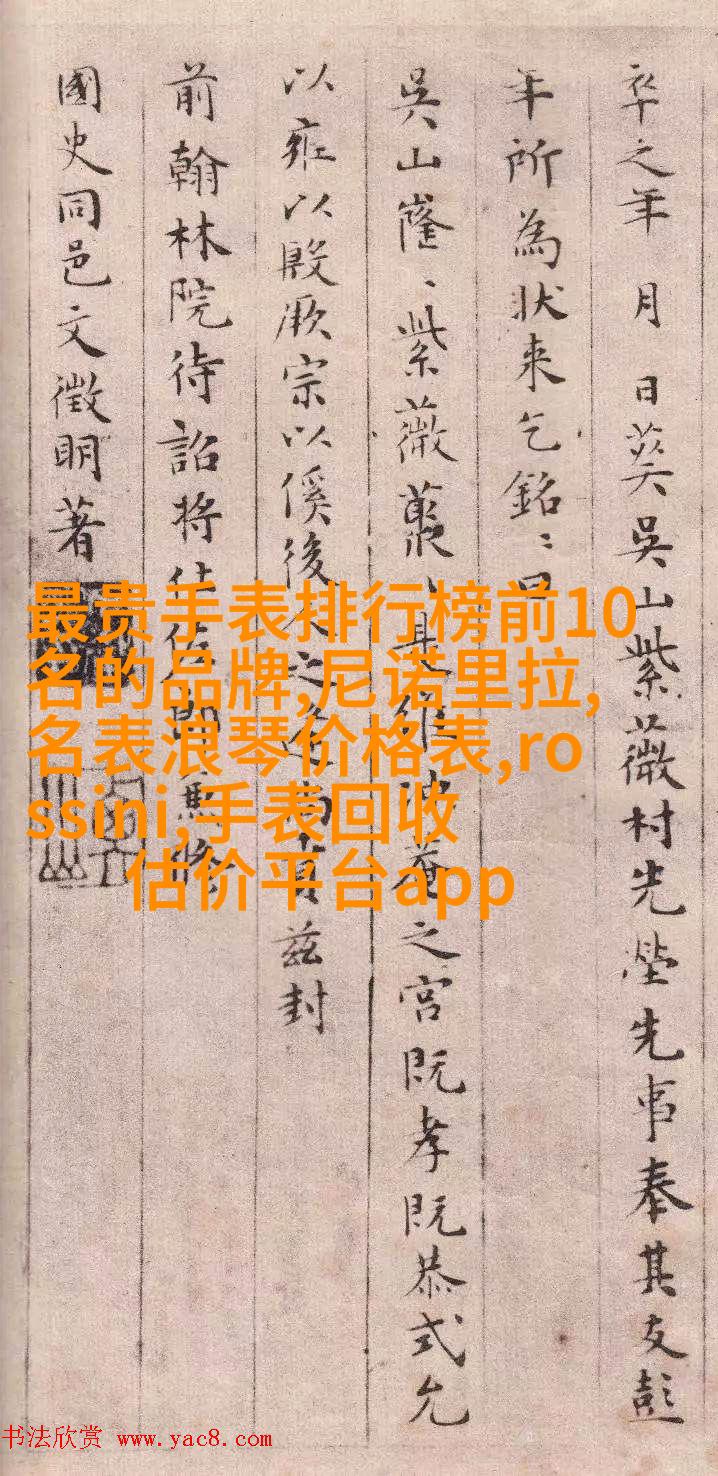 卒之年 月 日葬吳山紫薇村先塋先事奉其友彭
年所為狀来乞銘〻曰
吳山窿〻紫薇叢
之宮既孝既恭式允
以雍以殿厥宗以傒後
茲封
前翰林院待詔將仕佐郎
國史同邑文徵明著
最贵手表排行榜前10
名的品牌,尼诺里拉,
名表浪琴价格表,ro
ssini,手表回收
估价平台app
书法欣赏 www.yac8.com